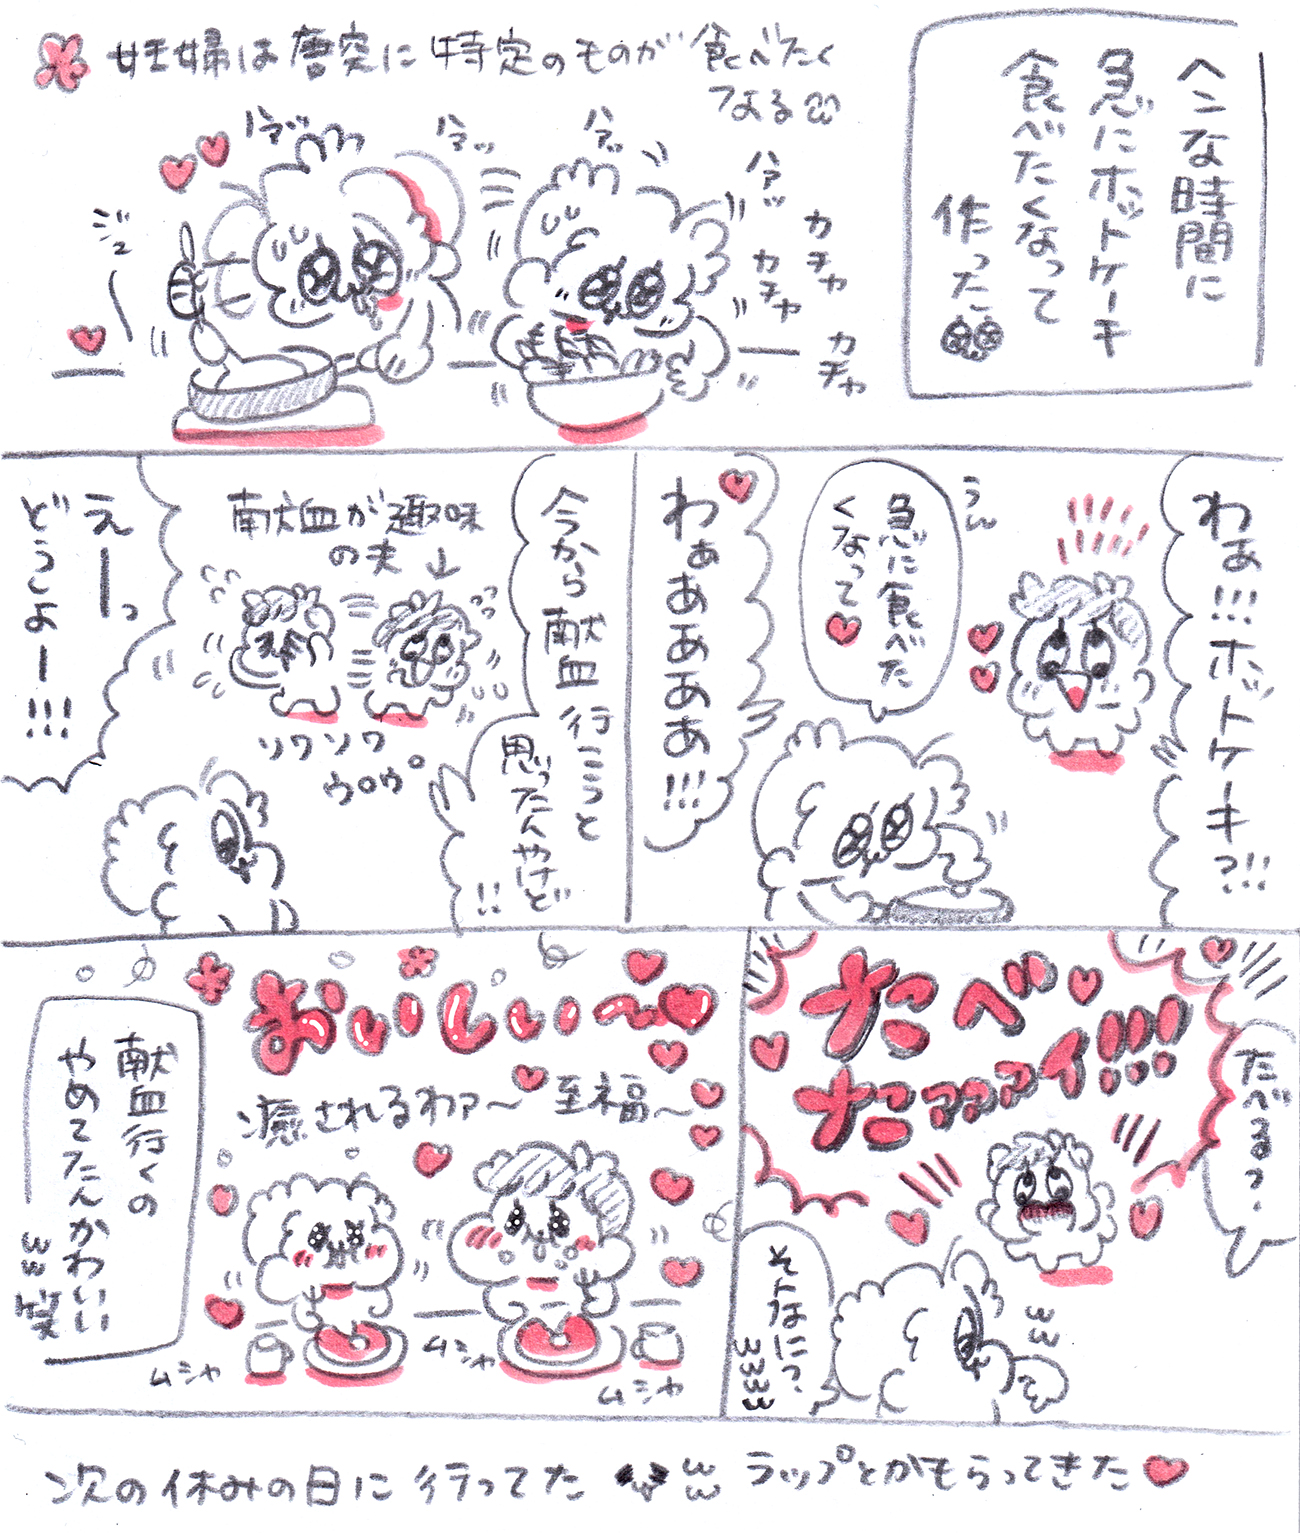 ヘンな時間に
急にホットケーキ
食べたくなって
作った
妊婦は唐突に特定のものが食べたく
なるωω
ハァッ
ハァッ
ハァッ
ハァッ
カチャ
カチャ
カチャ
ジュ
わぁ!!!ホットケーキ?!!!
うん
急に食べた
くなって
わぁああああ!!!
今から献血行こうと
思ってたんやけど
!!
献血が趣味
の夫↓
ソワソワ
ウロウロ
えーっ
どうしよー!!!
たべる?
たべ
たァァァァイ!!!
そんなに?
wwww
ww
おいしい〜
癒されるわァ〜至福〜
ムシャ
ムシャ
ムシャ
献血行くの
やめてたんかわいい
ww笑
次の休みの日に行ってた ww ラップとかもらってきた